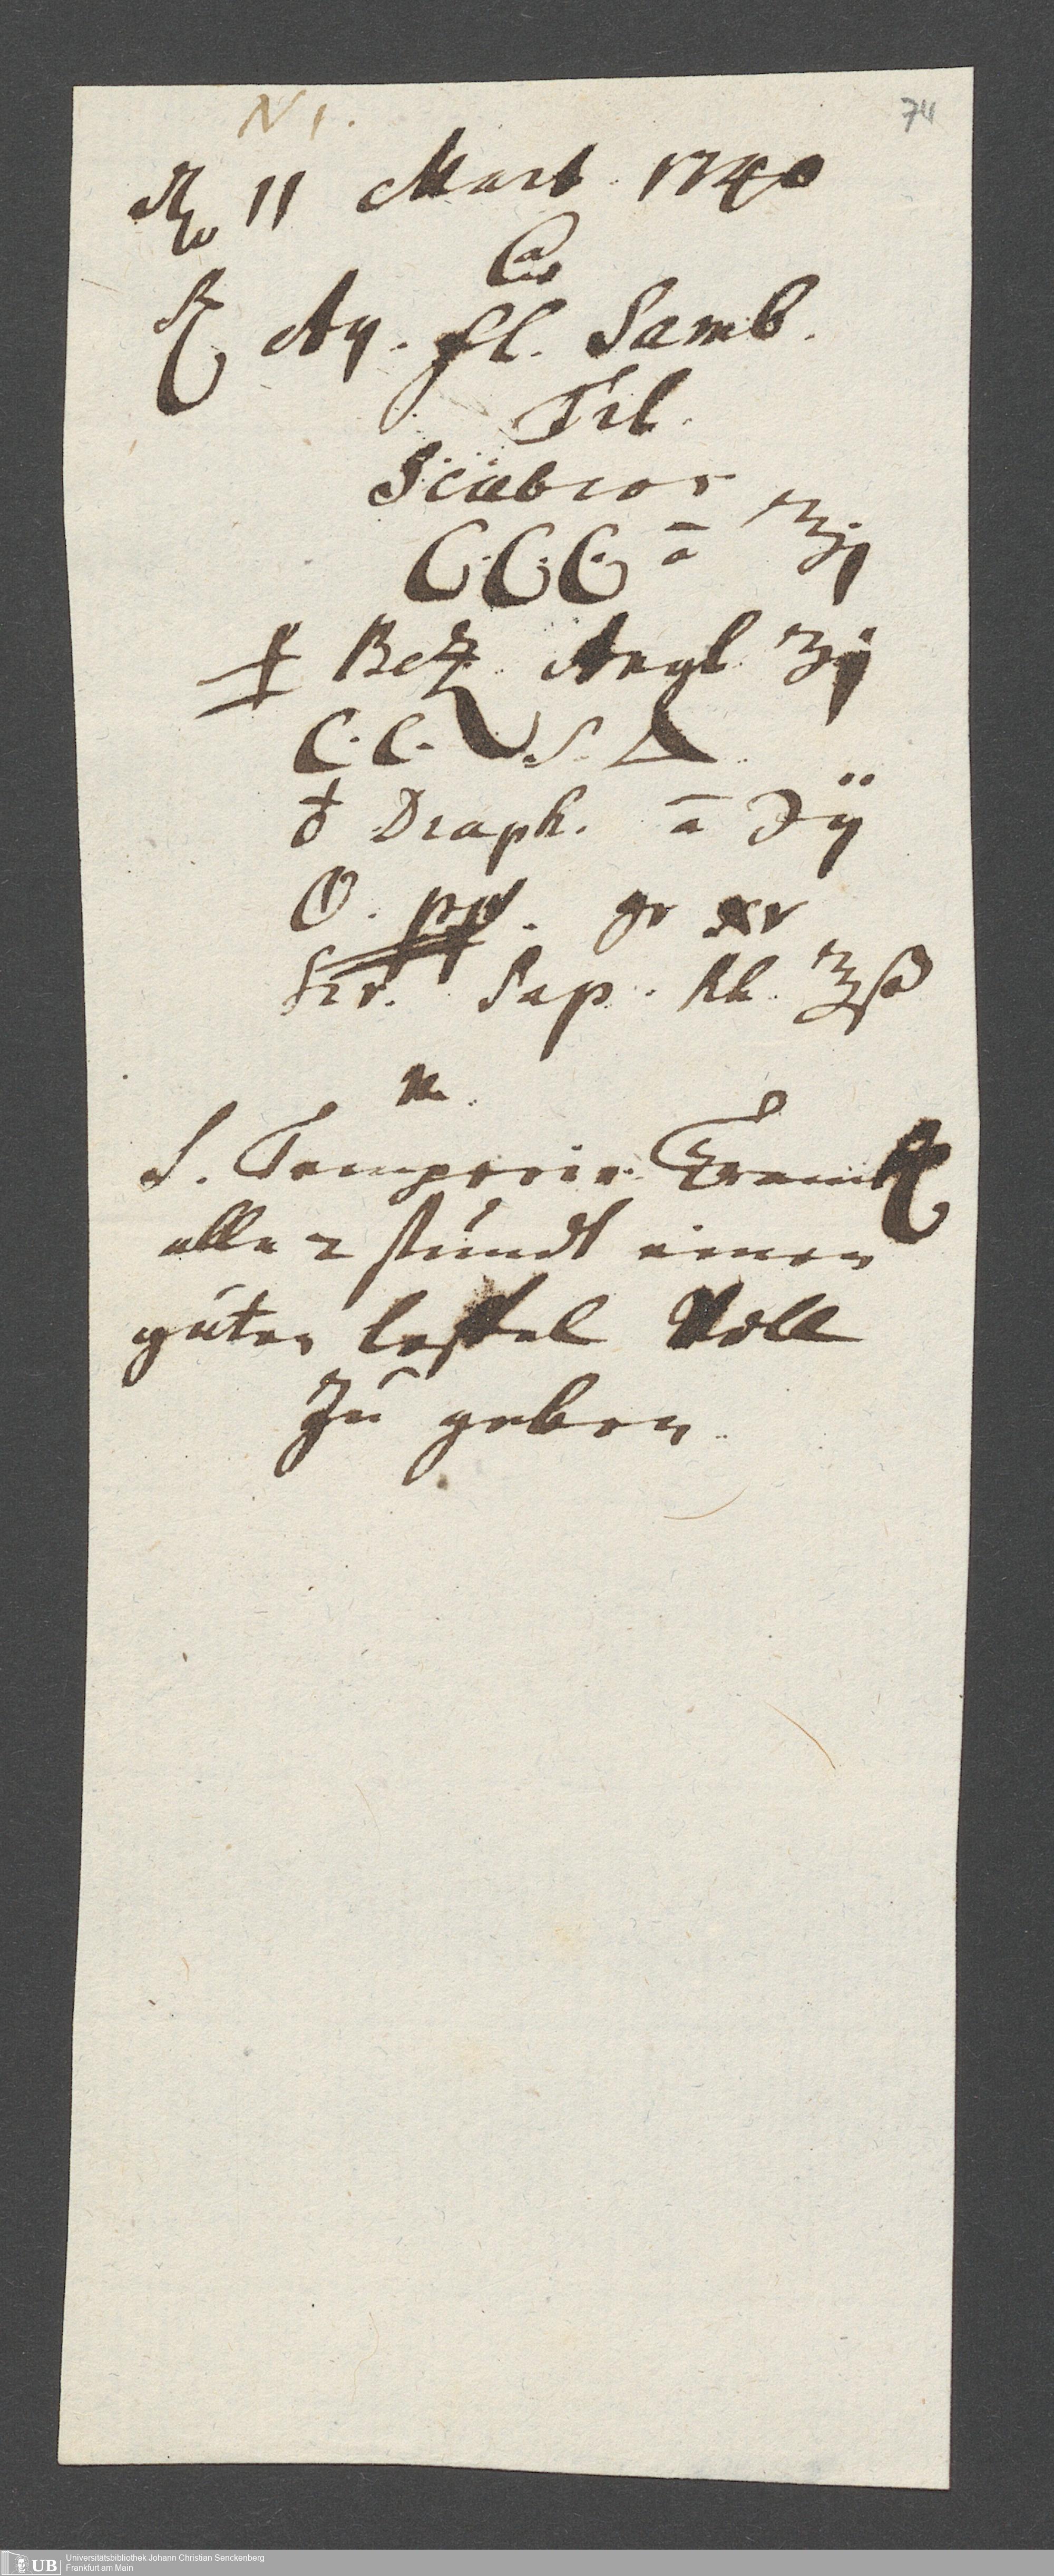 N 1.
74
11 Mart 1740
℞ Aq. fl. Samb.
Til.
Scabios
C.C.C. ā ℥j
Bez. Angl ʒij
C.C. S. △
♁ Diaph. ā ℈ij
pp. gr xv
Sir. Pap. Rh. ℥ß
M.
S. Temperir Tranck
alle 2 stundt einen
guten leffel Voll
Zu geben
Universitätsbibliothek Johann Christian Senckenberg
Frankfurt am Main
UB